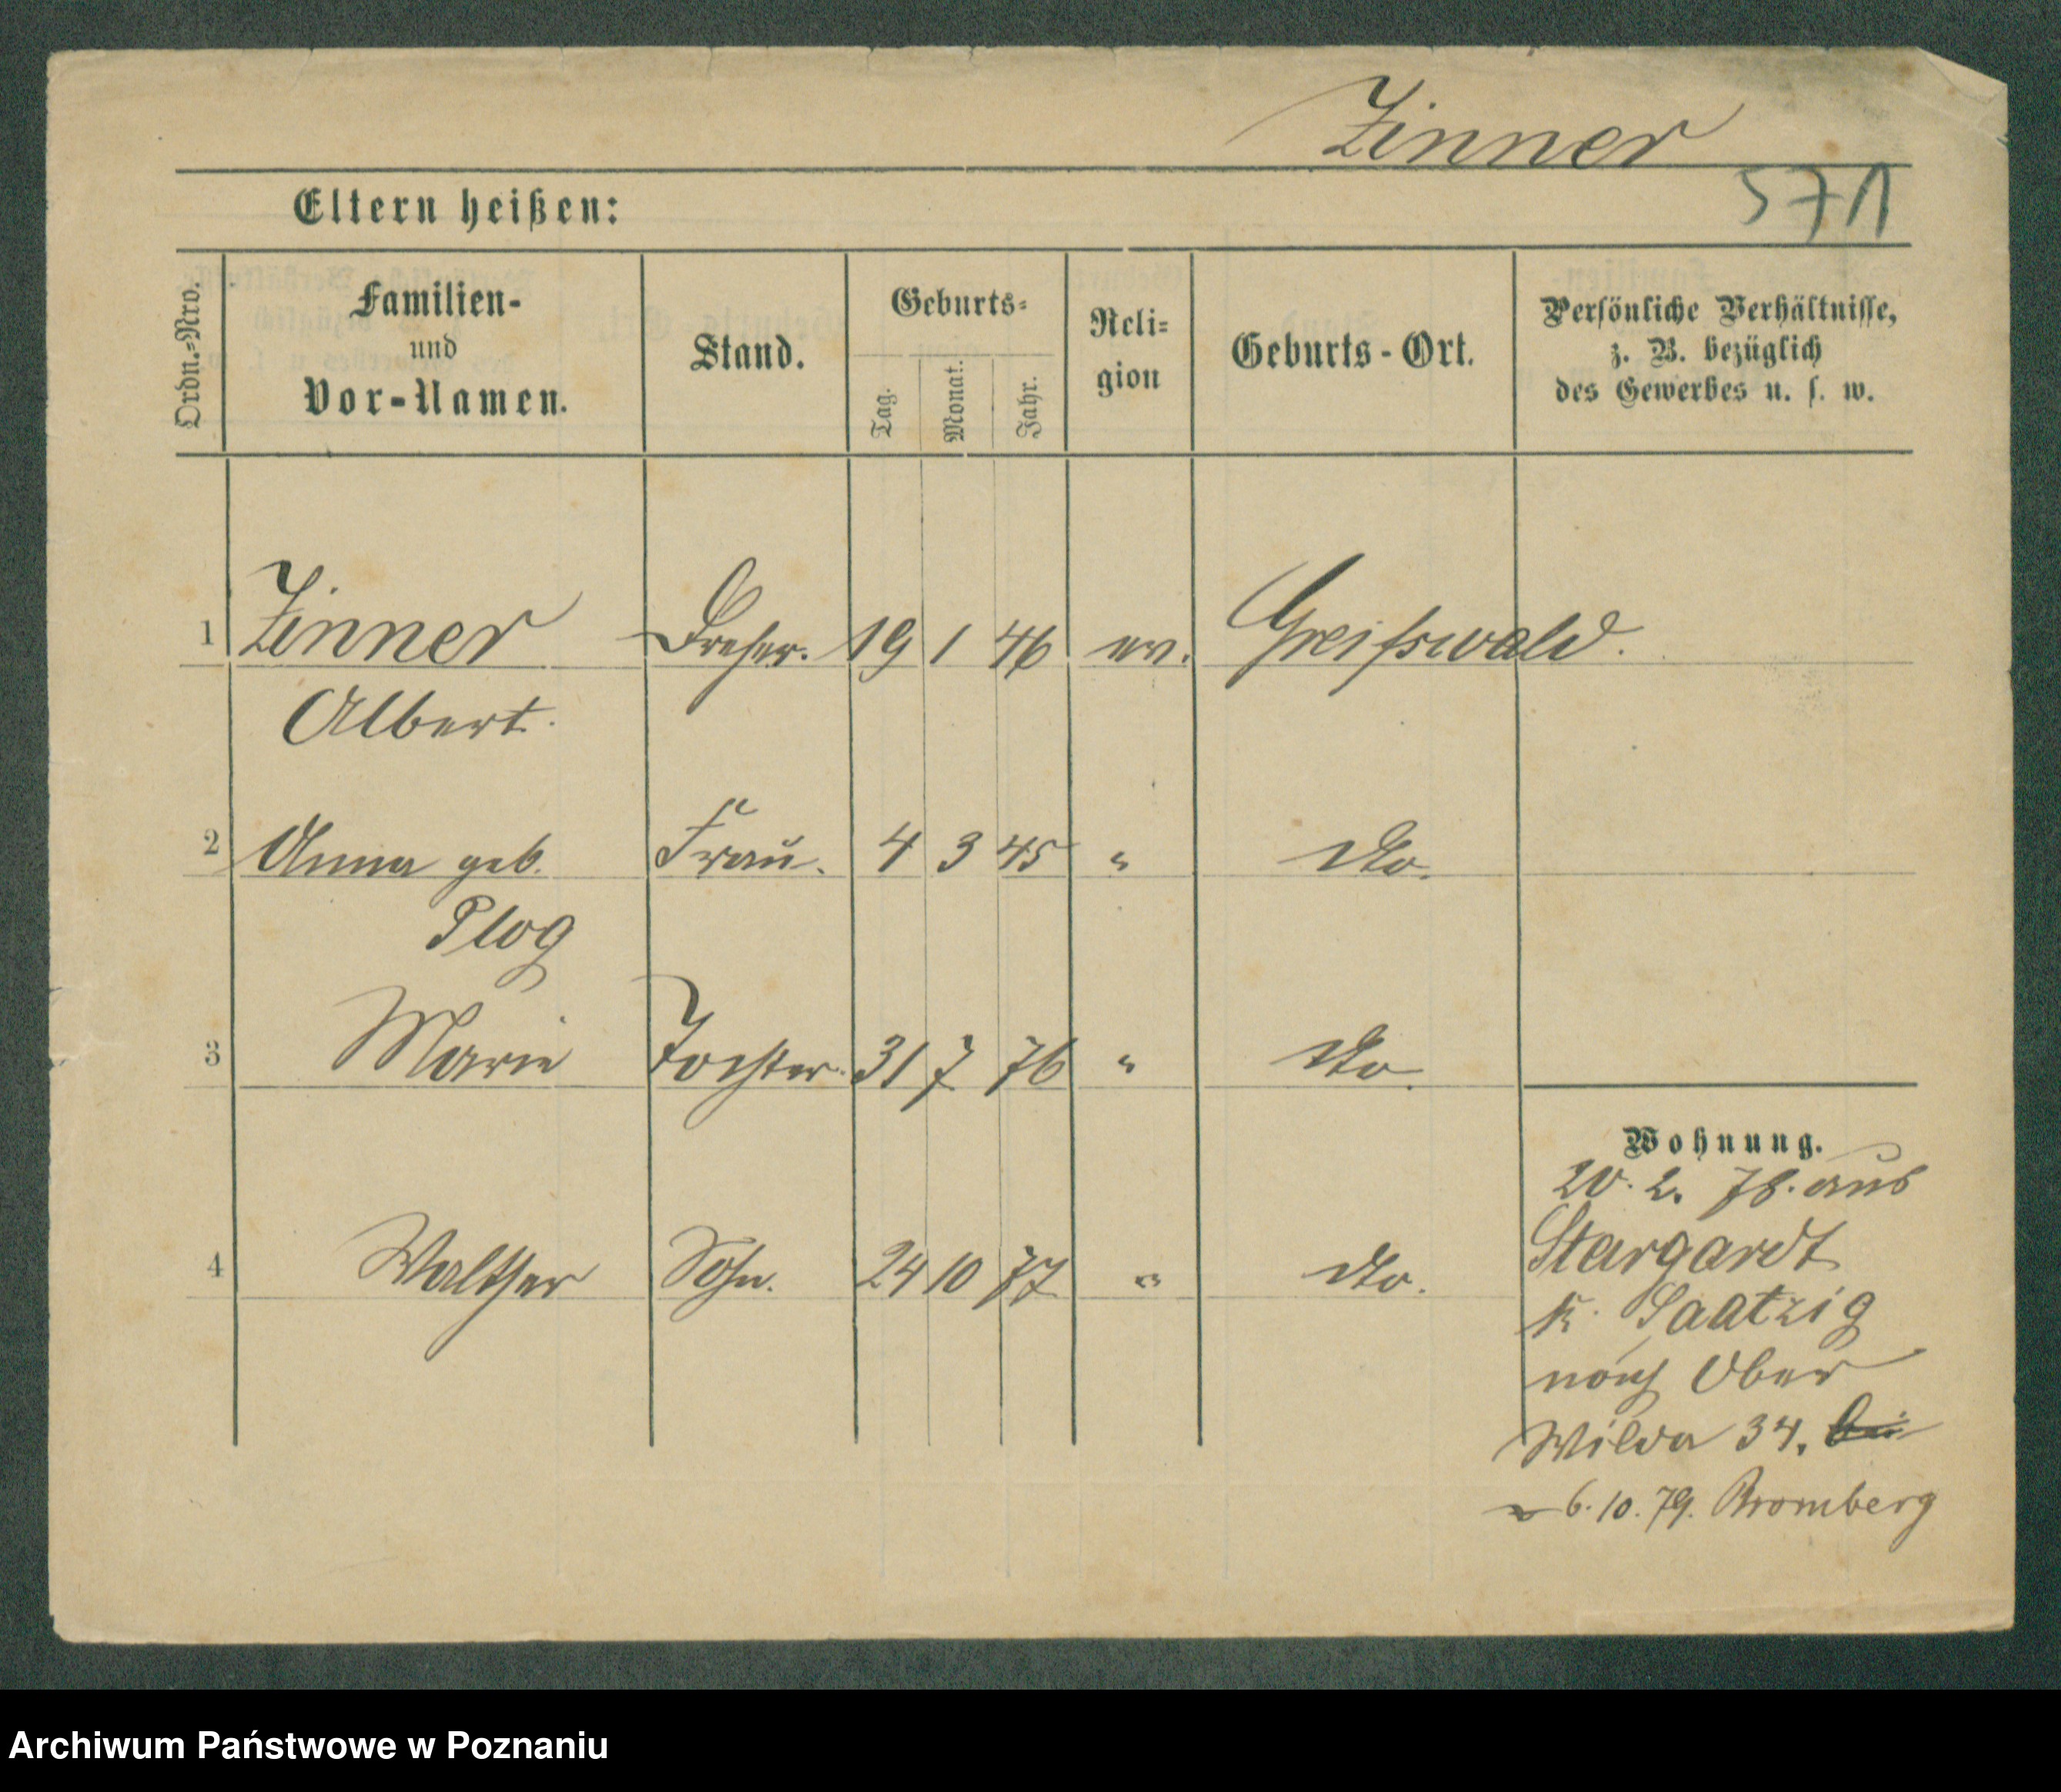 Zinner
571
Eltern heißen:
Ordn.-Nro.
Familien-
und
Vor-Namen.
Stand.
Geburts-
Tag.
Monat.
Jahr.
Reli-
gion
Geburts-Ort.
Persönliche Verhältnisse,
z. B. bezüglich
des Gewerbes u. s. w.
1 Zinner Dreher. 19 1 46 ev. Greifswald.
Albert.
2 Anna geb. Frau. 4 3 45 " dto.
Plog
3 Marie Tochter. 31 7 76 " dto.
4 Walther Sohn. 24 10 77 " dto.
Wohnung.
20. 2. 78. aus
Stargardt
K. Saatzig
nach Ober
Wilda 34.
6. 10. 79. Bromberg
Archiwum Państwowe w Poznaniu